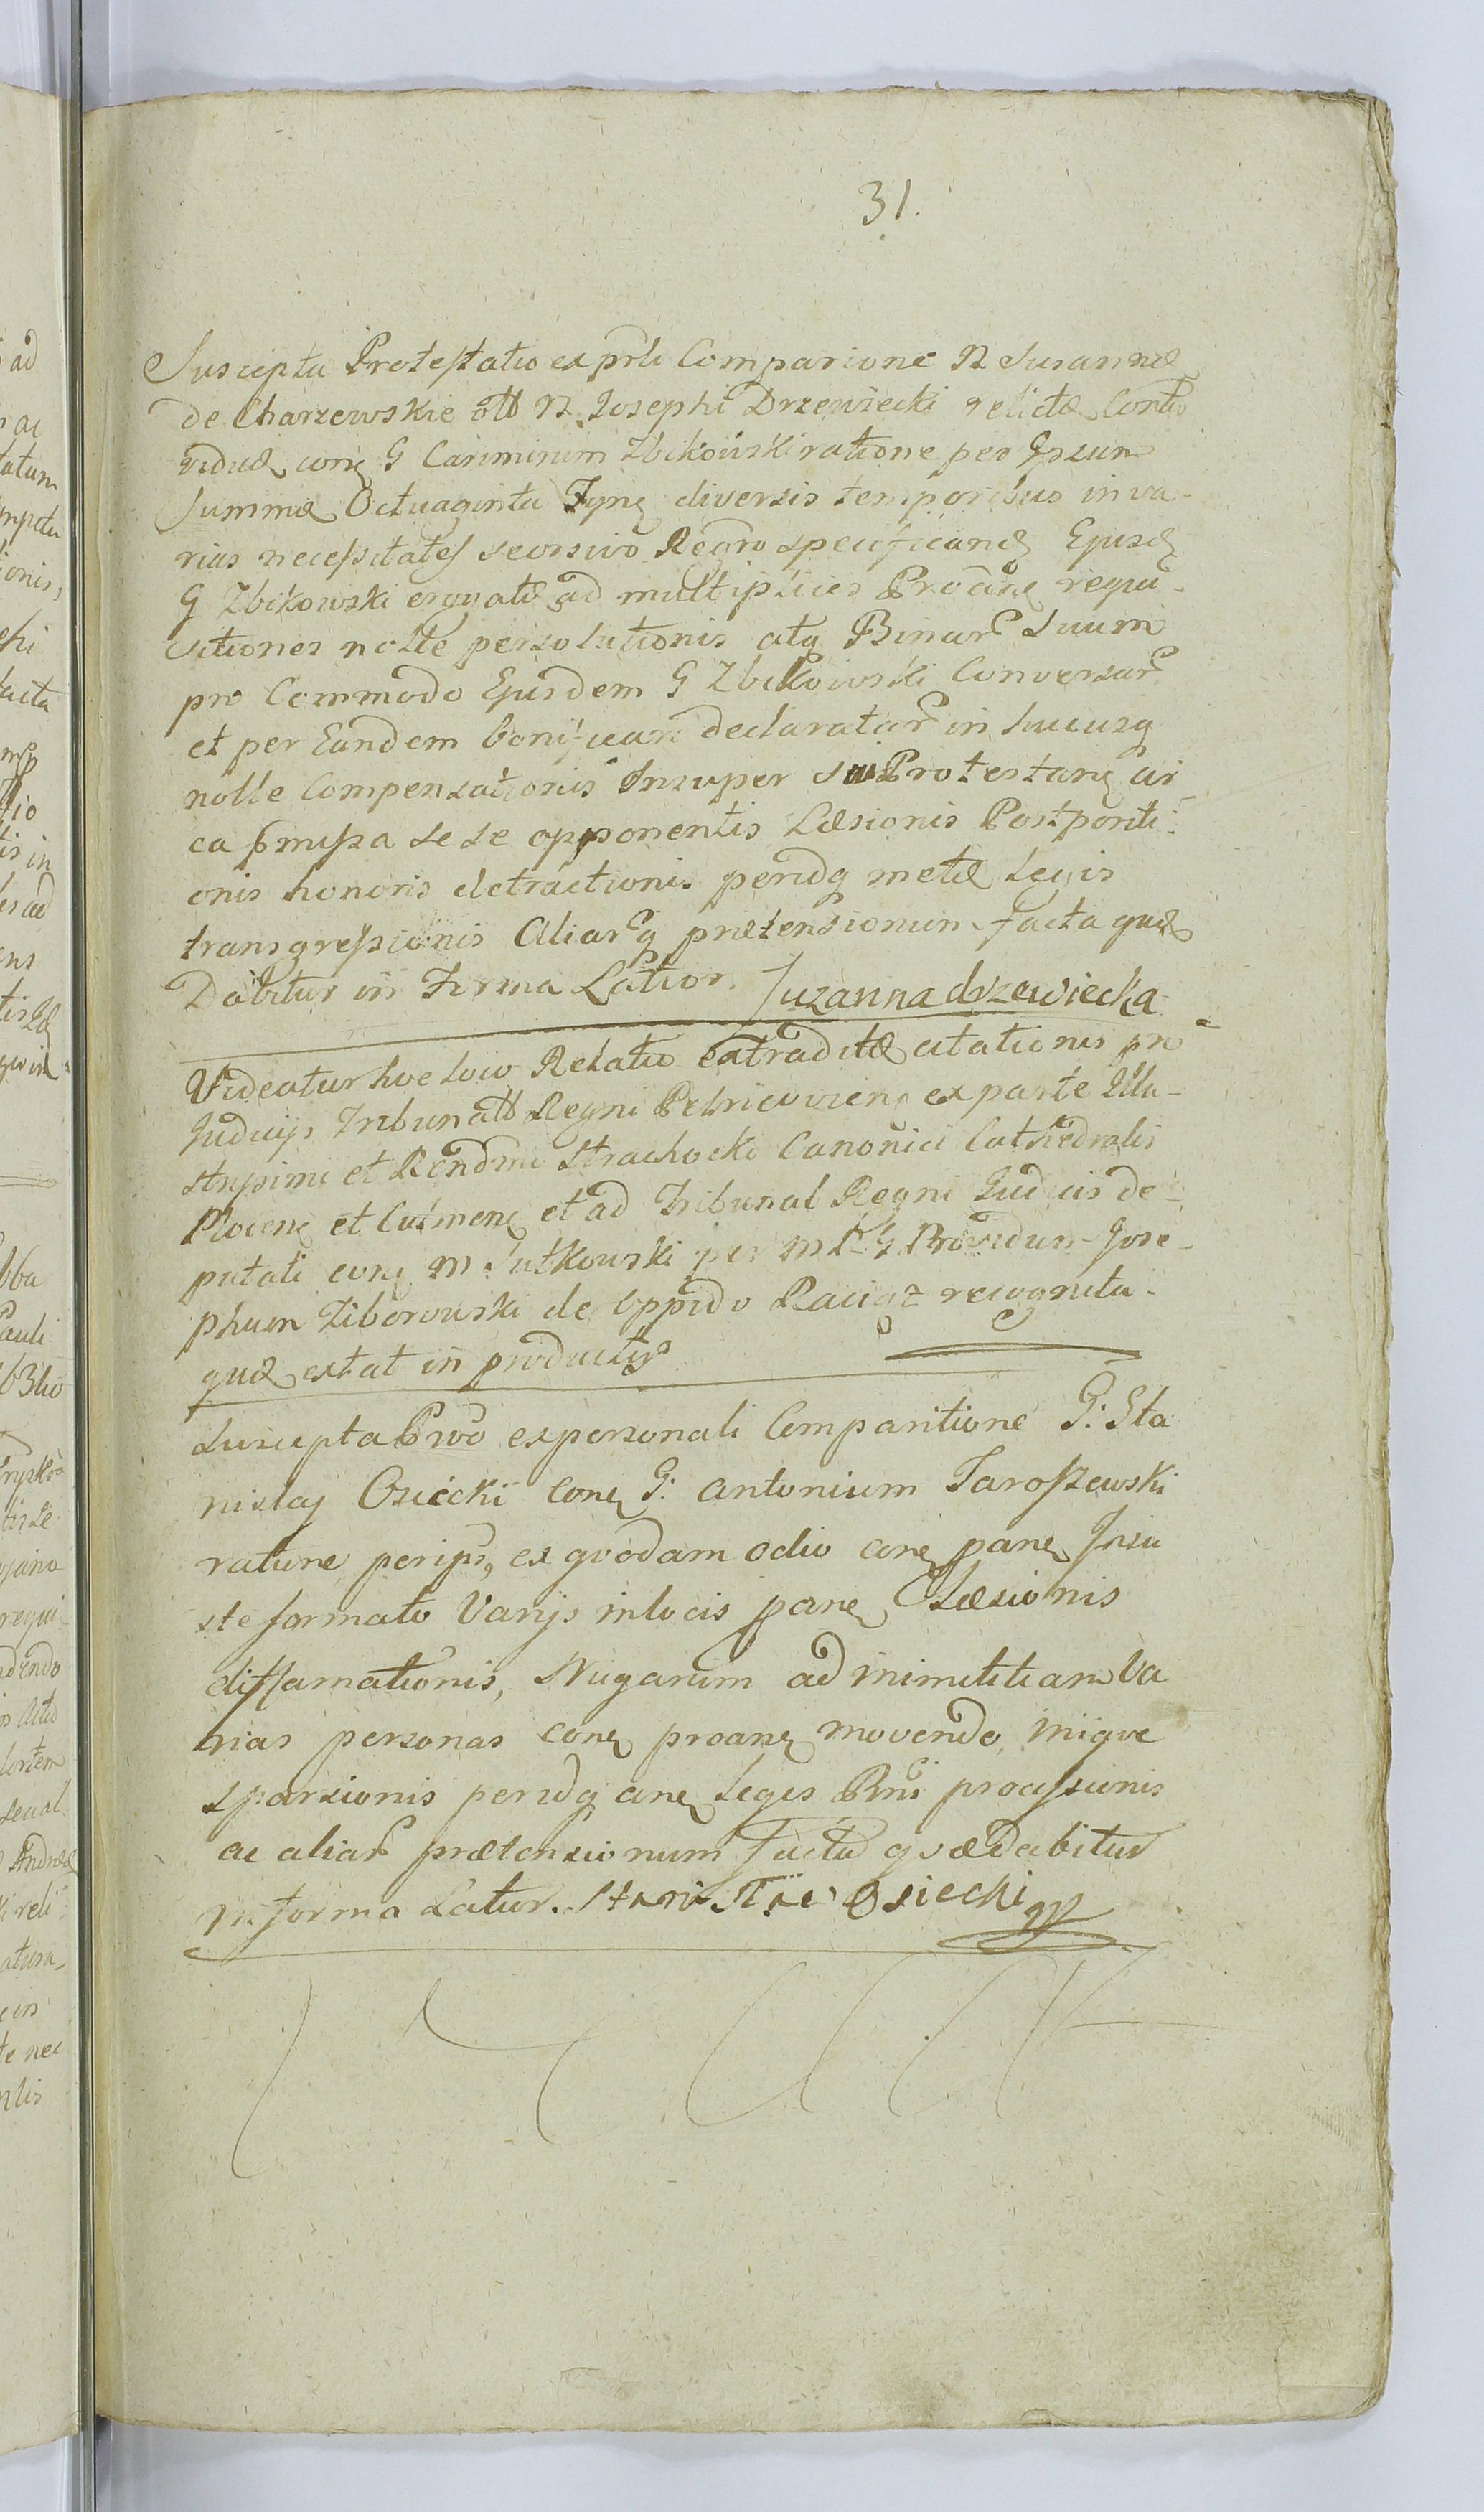 31.
Suscepta Protestatio ex prli Comparione N Susannæ
de Charzewskie olt N. Josephi Drzewiecki relictæ Cons
viduæ conę G Casimirum Zbikowski ratione per Ipsum
Summæ Octuaginta Tynę diversis temporibus in va-
rias necessitates seorsivo Regro specificandę Ejusdę
G Zbikowski erogatæ ad multiplices Procanę requi-
sitiones nolle persolutionis atq Binar Suum
pro Commodo Ejusdem G Zbikowski Conversar
et per Eundem bonificari declaratar in hucusq
nolle Compensationis Insuper sui Protestanę cir
ca pmissa se se opponentis Læsionis Postpositi-
onis honoris detractionis perndq metæ Legis
transgressionis Aliarq prætensionum facta quæ
Dabitur in Forma Latior. Zuzanna drzewiecka
Videatur hoc loco Relatio extraditæ citationis pro
Judicijs Tribunalt Regni Petricovienę ex parte Illu-
strissimi et Rendmi Strachocki Canonici Cathedralis
Plocenę et Culmenę et ad Tribunal Regni Judicis de-
putati conę M. Sutkowski per Providum Jose-
phum Ziborowski de Oppido Raciąz recognita
quæ extat in productis
Suscepta Ptwo ex personali Comparitione G: Sta
nislaj Osiecki Conę G: Antonium Jaroszewski
ratione per ips, ex quodam odio conę panę Inju
ste formato Varijs in locis panę Læsionis
diffamationis, Nugarum ad inimicitiam Va
rias personas conę proanę movendo, inique
sparsionis perndq canę Leges Rni processionis
ac aliar prætensionum facta quæ Dabitur
in forma Latior. Osiecki